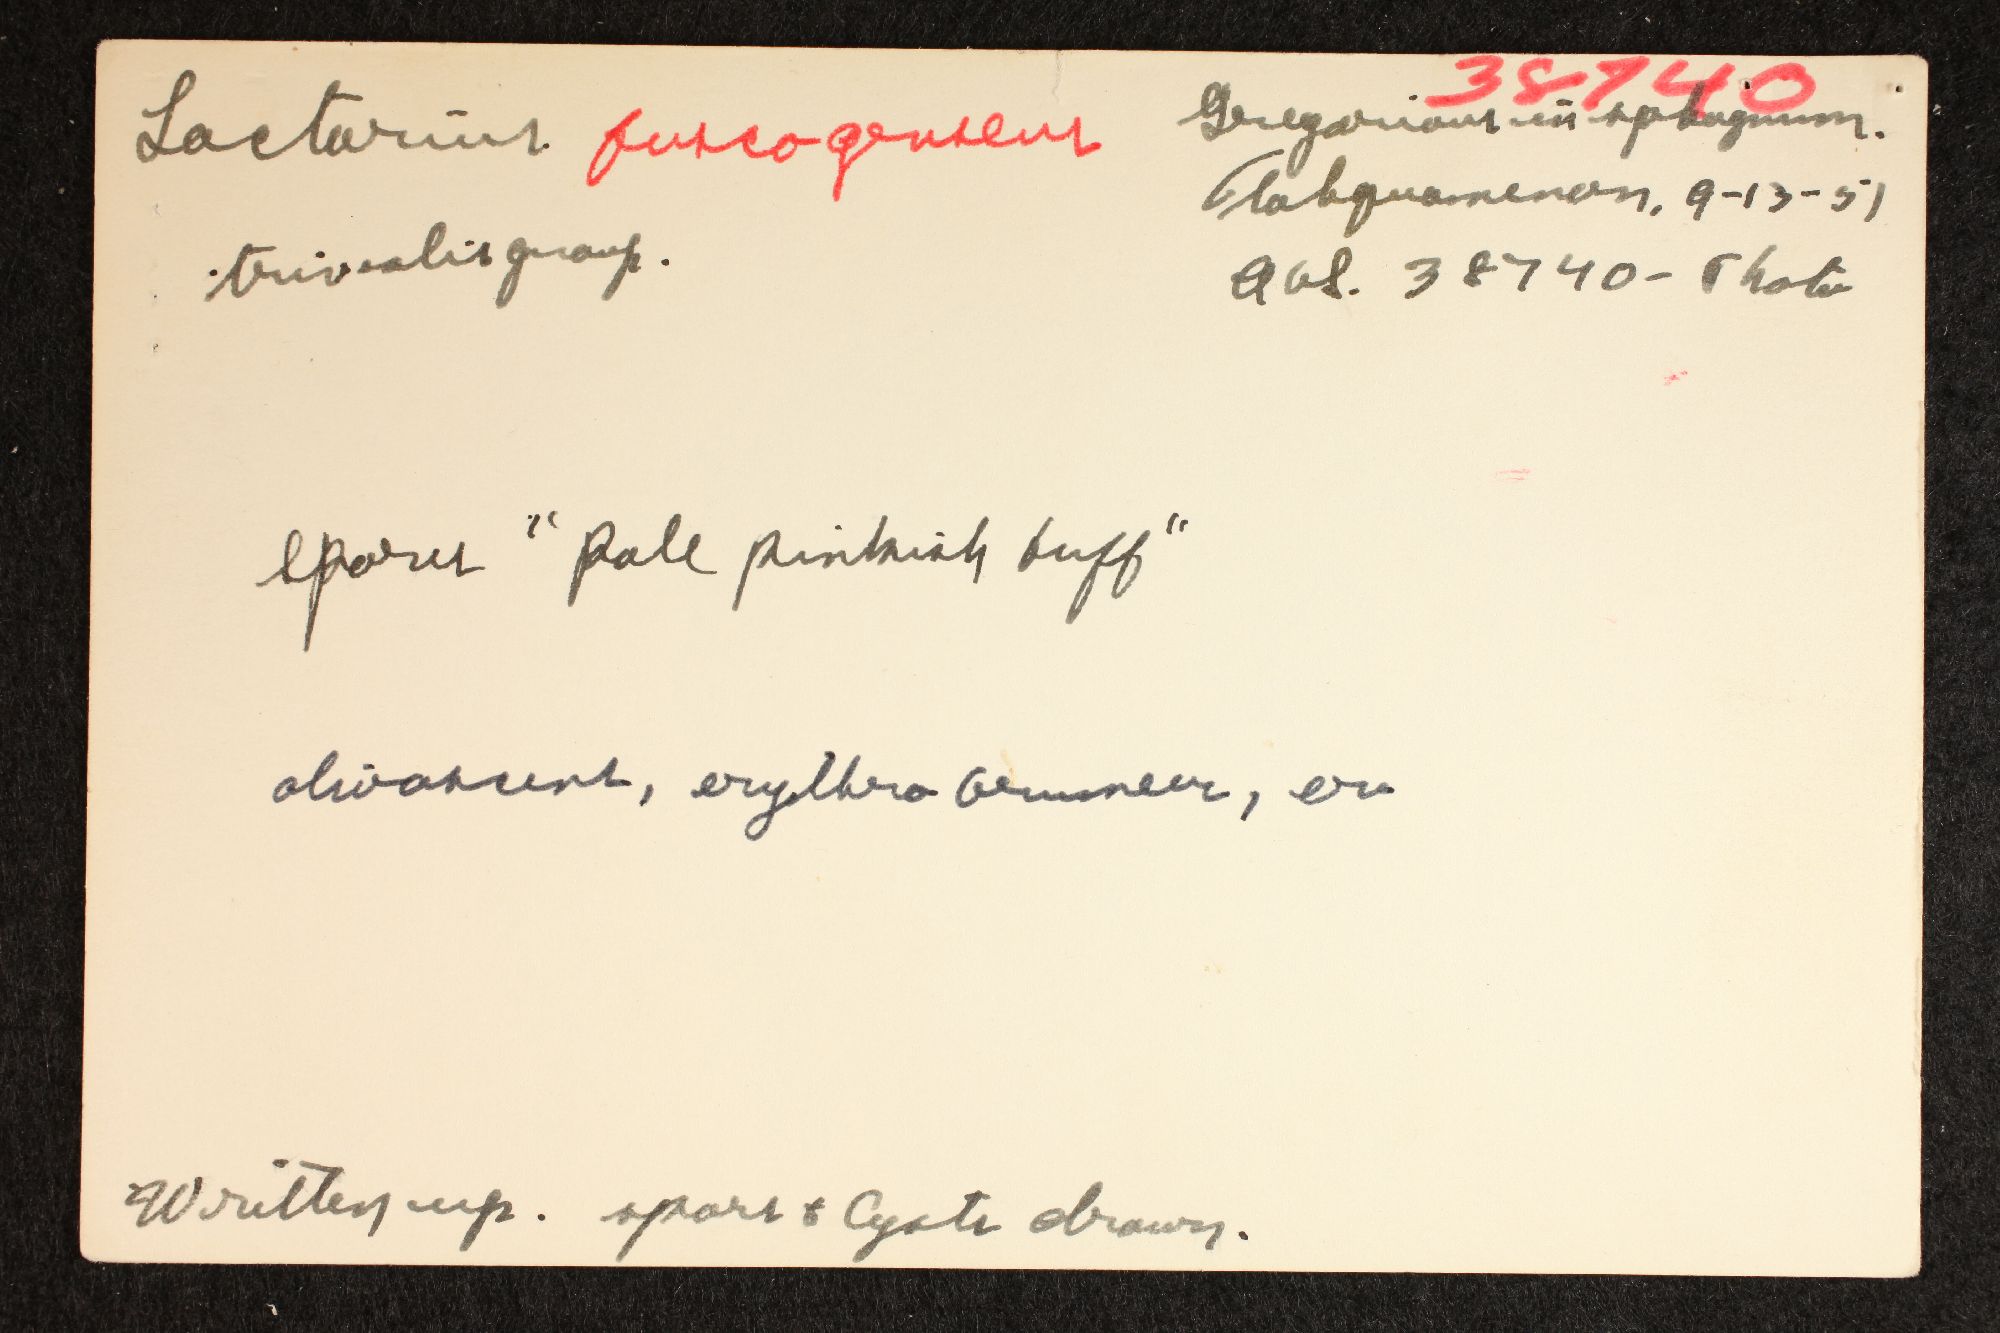 38740
Lactarius fuscogriseus Gregarious in sphagnum.
Tahquamenon, 9-13-51
trivialis group. AHS. 38740 - Photo
spores "pale pinkish buff"
olivascens, erythro
Written up. spores & Cysts drawn.